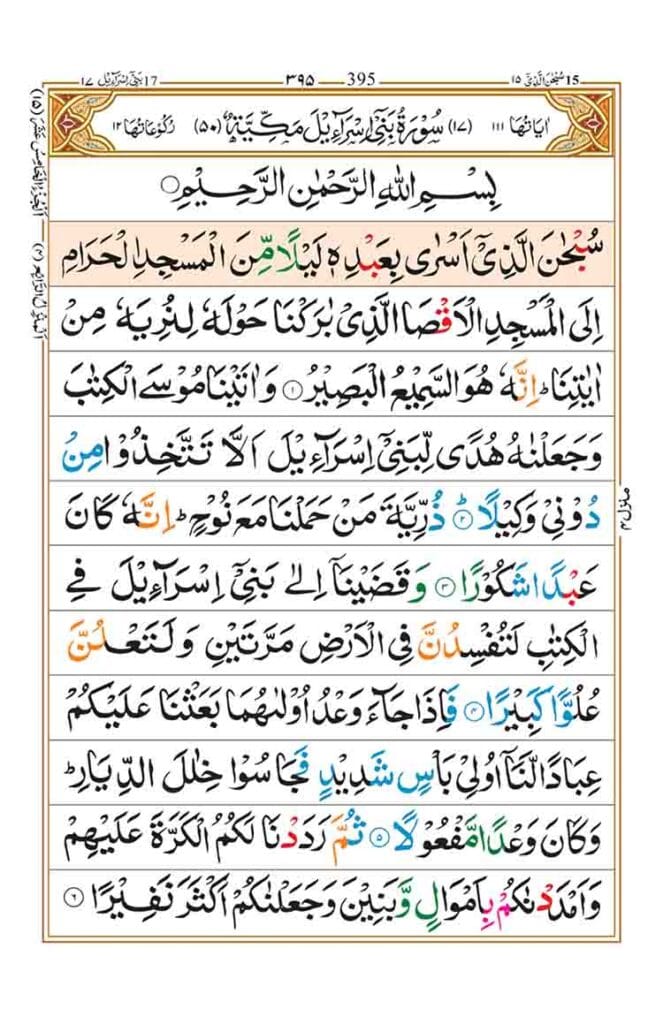 17 بنیٓ اسرآءیل ١٧
٣٩٥ 395
15 سبحٰن الذیٓ ١٥
اٰیاتها ١١١ (١٧) سُوْرَةُ بَنِيْٓ اِسْرَآءِيْلَ مَكِّيَّةٌ (٥٠) رُكُوْعَاتُهَا ١٢
بِسْمِ اللّٰهِ الرَّحْمٰنِ الرَّحِيْمِ○
سُبْحٰنَ الَّذِيْٓ اَسْرٰى بِعَبْدِهٖ لَيْلًا مِّنَ الْمَسْجِدِ الْحَرَامِ
اِلَى الْمَسْجِدِ الْاَقْصَا الَّذِيْ بٰرَكْنَا حَوْلَهٗ لِنُرِيَهٗ مِنْ
اٰيٰتِنَا ؕ اِنَّهٗ هُوَ السَّمِيْعُ الْبَصِيْرُ ۝١ وَاٰتَيْنَا مُوْسَى الْكِتٰبَ
وَجَعَلْنٰهُ هُدًى لِّبَنِيْٓ اِسْرَآءِيْلَ اَلَّا تَتَّخِذُوْا مِنْ
دُوْنِيْ وَكِيْلًا ؕ۝٢ ذُرِّيَّةَ مَنْ حَمَلْنَا مَعَ نُوْحٍ ؕ اِنَّهٗ كَانَ
عَبْدًا شَكُوْرًا ۝٣ وَقَضَيْنَآ اِلٰى بَنِيْٓ اِسْرَآءِيْلَ فِي
الْكِتٰبِ لَتُفْسِدُنَّ فِي الْاَرْضِ مَرَّتَيْنِ وَلَتَعْلُنَّ
عُلُوًّا كَبِيْرًا ۝٤ فَاِذَا جَآءَ وَعْدُ اُوْلٰىهُمَا بَعَثْنَا عَلَيْكُمْ
عِبَادًا لَّنَآ اُولِيْ بَاْسٍ شَدِيْدٍ فَجَاسُوْا خِلٰلَ الدِّيَارِ ؕ
وَكَانَ وَعْدًا مَّفْعُوْلًا ۝٥ ثُمَّ رَدَدْنَا لَكُمُ الْكَرَّةَ عَلَيْهِمْ
وَاَمْدَدْنٰكُمْ بِاَمْوَالٍ وَّبَنِيْنَ وَجَعَلْنٰكُمْ اَكْثَرَ نَفِيْرًا ۝٦
الجزء الخامس عشر (١٥)
المنزل الرابع (٤)
منزل٤